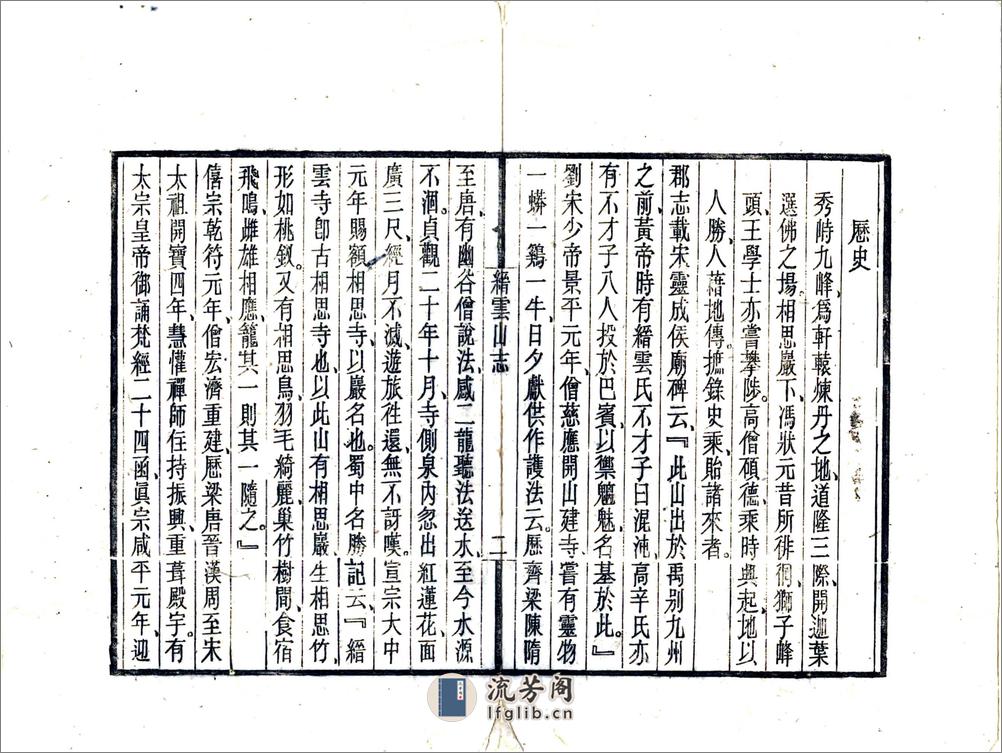 歷史
秀峙九峰、爲軒轅煉丹之地、道隆三際、開迦葉
選佛之場。相思巖下、馮狀元昔所徘徊、獅子峰
頭、王學士亦嘗攀陟。高僧碩德、乘時興起、地以
人勝、人藉地傳。摭錄史乘、貽諸來者。
郡志載宋靈成侯廟碑云、『此山出於禹別九州
之前、黃帝時有縉雲氏不才子曰混沌、高辛氏亦
有不才子八人、投於巴賓以禦魑魅、名基於此。』
劉宋少帝景平元年、僧慈應開山建寺、嘗有靈物
一蟒一鷄一牛、日夕獻供作護法云。歷齊梁陳隋
縉雲山志
二
至唐、有幽谷僧說法、感二龍聽法送水、至今水源
不涸。貞觀二十年十月、寺側泉內忽出紅蓮花、面
廣三尺、經月不滅、遊旅徃還、無不訝嘆。宣宗大中
元年賜額相思寺、以巖名也。蜀中名勝記云、『縉
雲寺卽古相思寺也、以此山有相思巖、生相思竹、
形如桃釵、又有相思鳥、羽毛綺麗、巢竹樹間、食宿
飛鳴、雌雄相應、籠其一則其一隨之。』
僖宗乾符元年、僧宏濟重建、歷梁唐晉漢周至宋
太祖開寶四年、慧懽禪師住持振興、重葺殿宇。有
太宗皇帝御誦梵經二十四函、眞宗咸平元年、迎
流芳阁
lfglib.cn